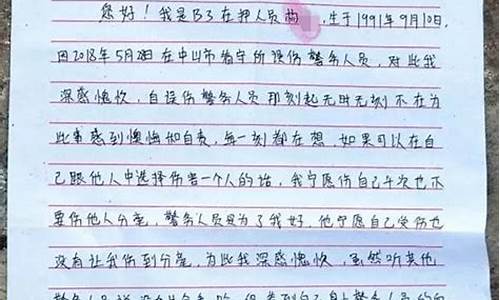 您好！我是B3在押人员尚 ，生于1991年9月10日.
因2018年5月28日在中山市看守所误伤警务人员，对此我
深感愧疚，自误伤警务人员那刻起无时无刻不在为
此事感到懊悔如自责，每一刻都在想，如果可以在自
己跟他人中选择伤害一个人的话，我宁愿伤自己千次也不
要伤他人分毫，警务人员是为了我好，他宁愿自己受伤也
没有让我伤到分毫，为此我深感愧疚，虽然听其他
警务人员说没有什么事